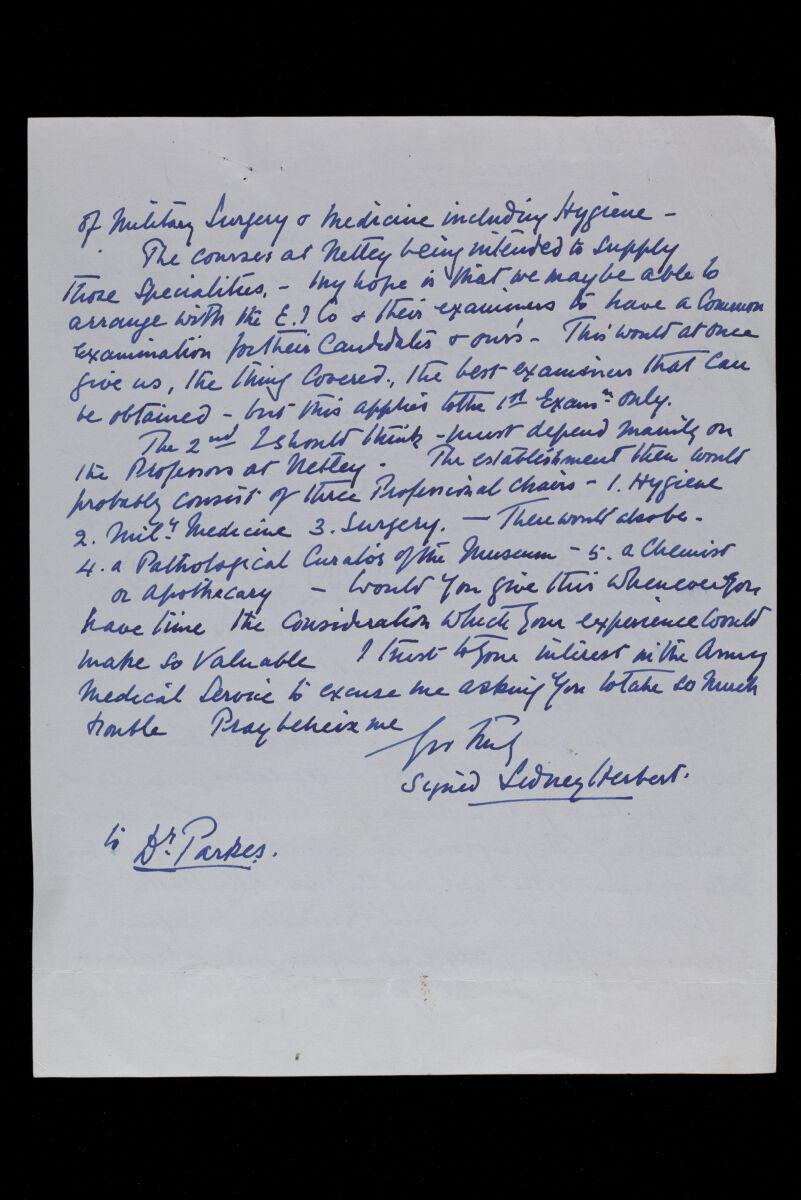 of Military Surgery & Medicine including Hygiene –
The courses at Netley being intended to supply
those Specialities. – My hope is that we may be able to
arrange with the E. I Co & their examiners to have a Common
examination for their Candidates & our's – This would at once
give us, the thing Covered, the best examiners that can
be obtained – but this applies to the 1st Examn only.
The 2nd I should think – must depend mainly on
the Professors at Netley. The establishment then would
probably consist of three Professional Chairs – 1. Hygiene
2. Mily Medicine 3. Surgery. – There would also be –
4. a Pathological Curator of the Museum – 5. a Chemist
or Apothecary – Would you give this whenever you
have time the consideration which your experience would
make so valuable I trust to your interest in the Army
Medical Service to excuse me asking you to take so much
trouble Pray believe me
Yrs truly
Signed Sidney Herbert.
to Dr. Parkes.